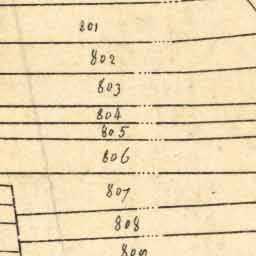 801
802
803
804
805
806
807
808
809